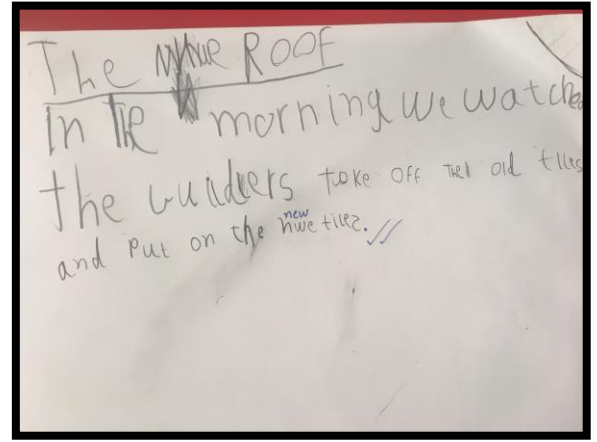 The ROOF
In The morning we watched
the builders take off the old tiles
and put on the new hwe tilez.